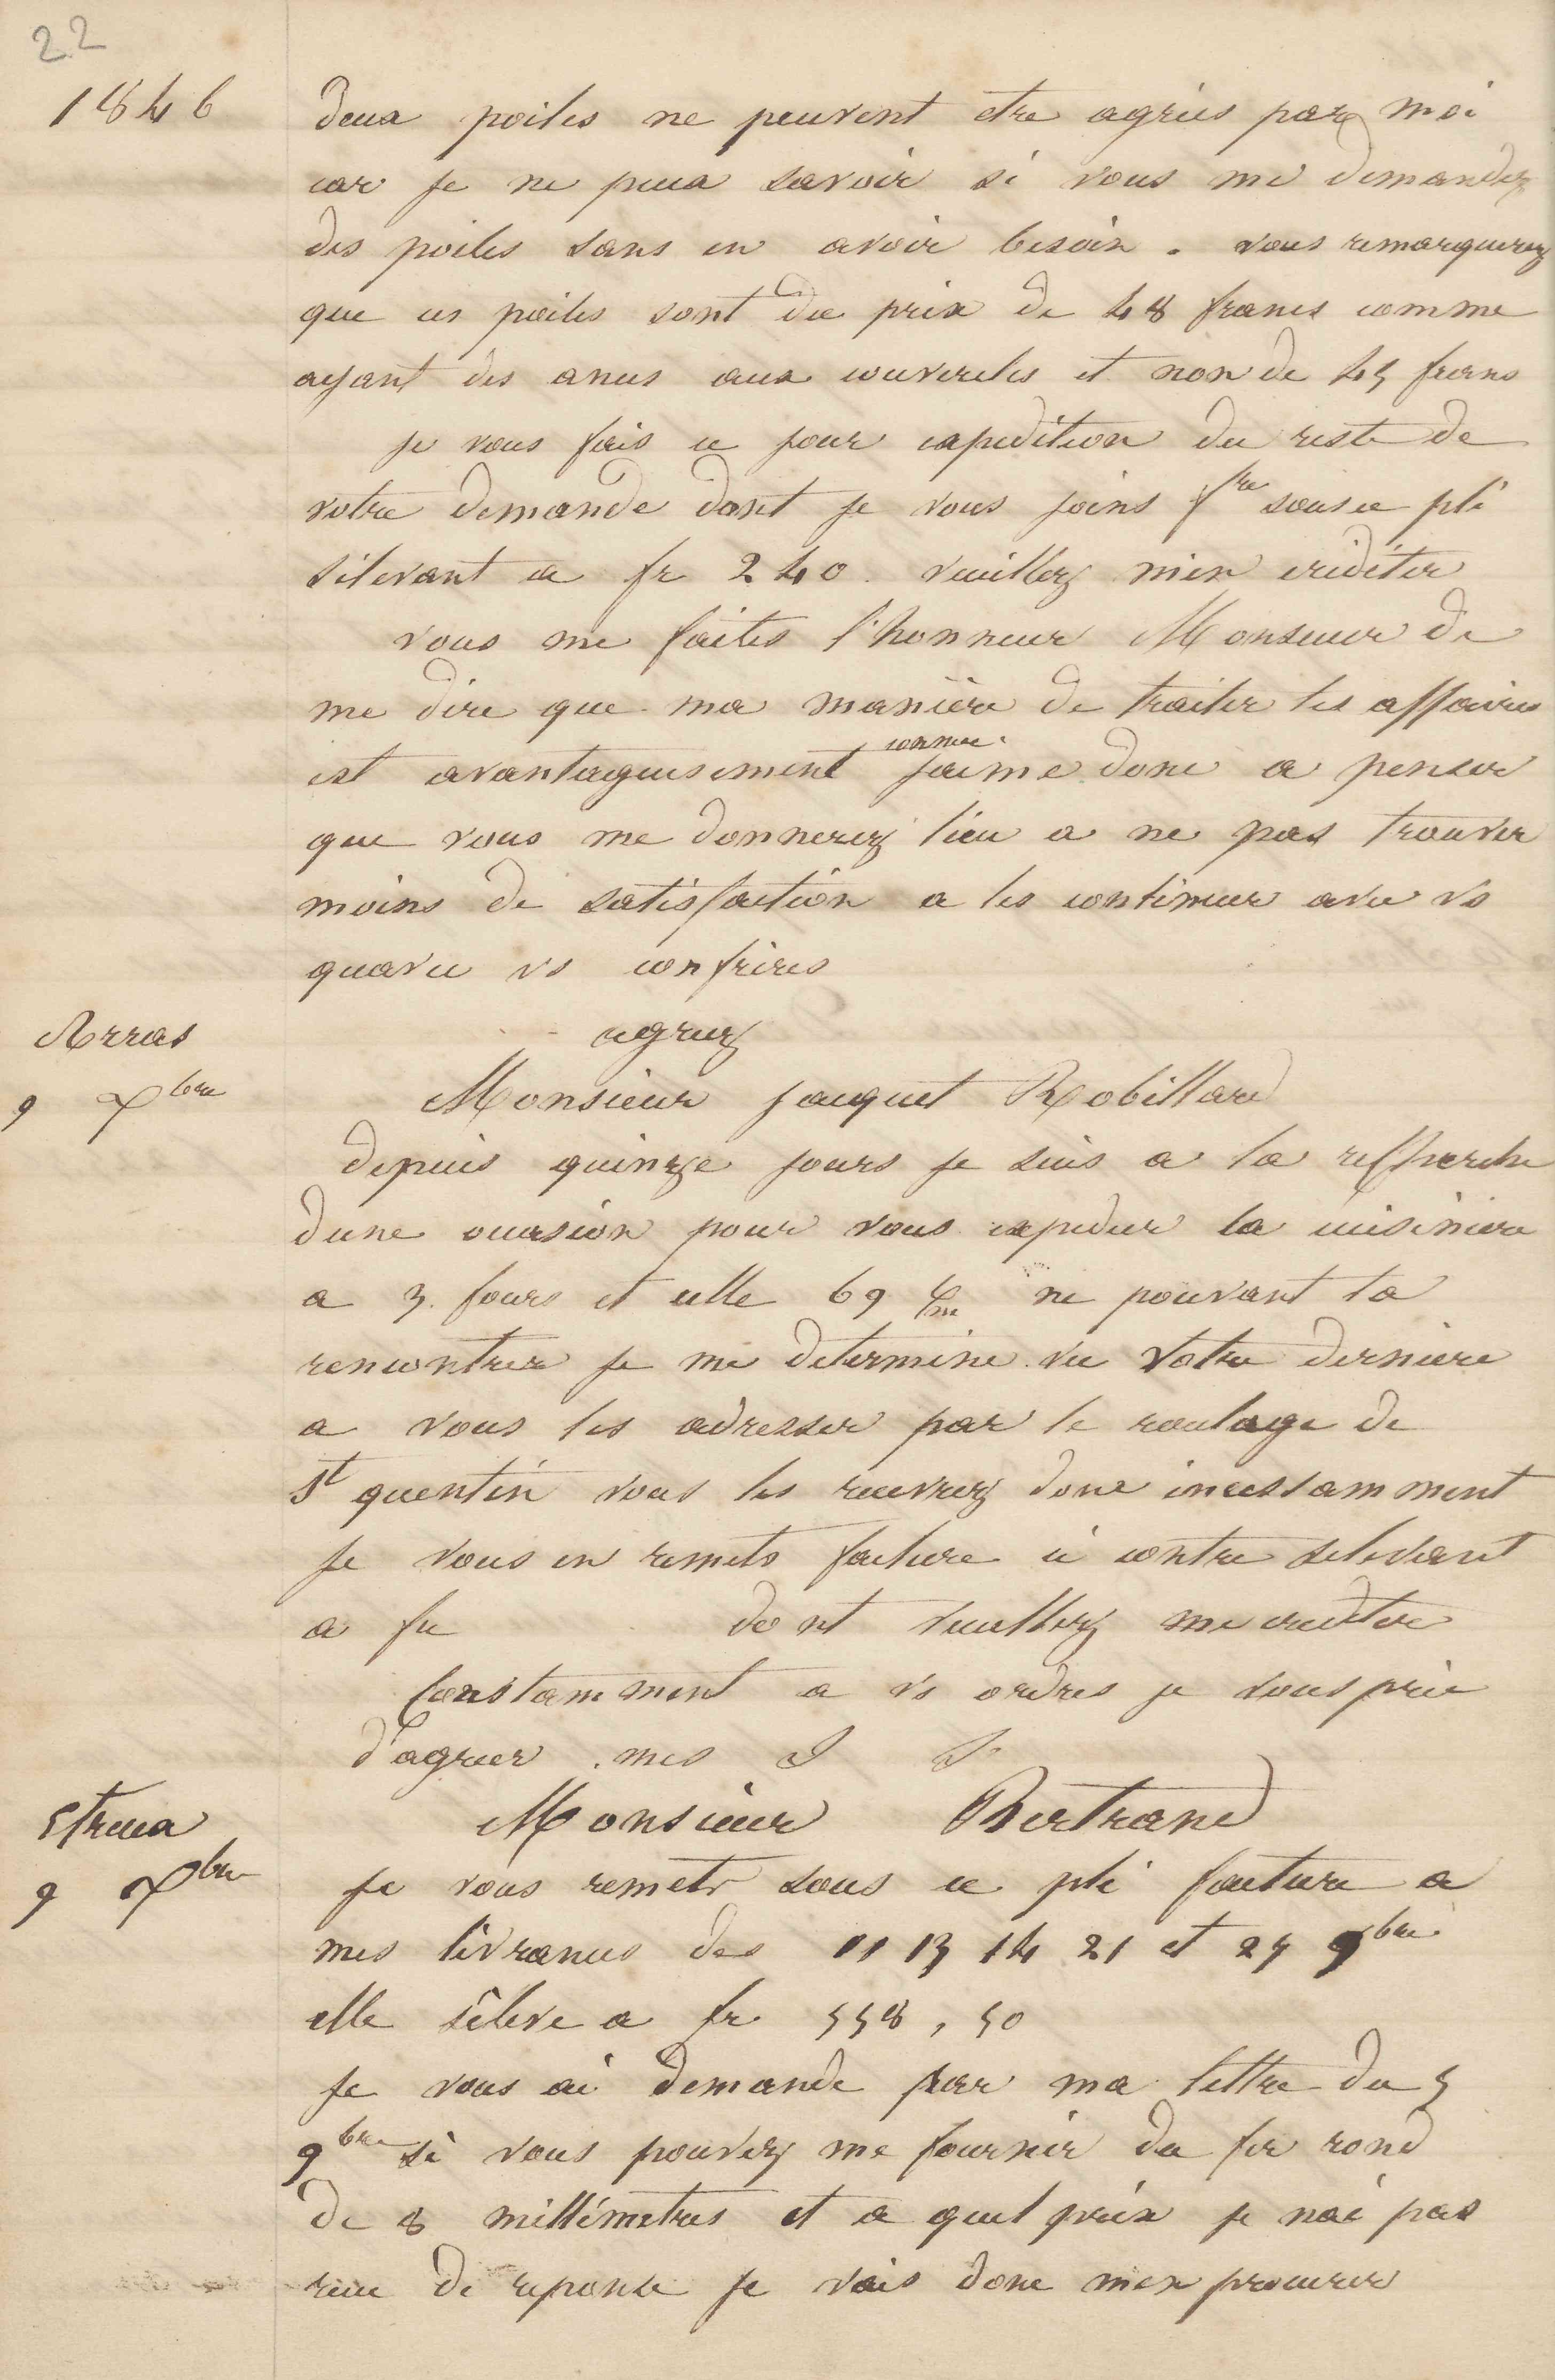 22
1846
deux poiles ne peuvent etre agriés par moi
car je ne peux savoir si vous me demandez
des poiles sans en avoir besoin . vous remarquerez
que ces poiles sont du prix de 48 francs comme
ayant des anses aux couvercles et non de 45 francs
je vous fais ce jour expedition du reste de
votre demande dont je vous joins fre sous ce pli
s'ilevant a fr 240 . veuillez m'en créditer
vous me faites l'honneur Monsieur de
me dire que ma manière de traiter les affaires
est avantageusement connue. jaime donc a penser
que vous me donnerez lieu a ne pas trouver
moins de satisfaction a les continuer avec vs
quavec vs confrères
agreez
Arras
9 Xbre
Monsieur jacquet Robillard
depuis quinze jours je suis a la rescherche
dune occasion pour vous expedier la cuisiniere
a 3 fours et celle 69 c/m ne pouvant la
rencontrer je me determine vu votre derniere
a vous les adresser par le roulage de
St quentin vous les recevrez donc incessamment
je vous en remets facture ci contre selevant
a fr dont veuillez me crediter
Constamment a vs ordres je vous prie
d'agreer . mes S S
Etreux
9 Xbre
Monsieur Bertrand
je vous remets sous ce pli facture a
mes livrances des 11 13 14 21 et 25 9bre
elle sêleve a fr 558 , 50
je vous ai demande par ma lettre du 5
9bre si vous pouvez me fournir du fer rond
de 8 millimetres et a quel prix je nai pas
recu de reponse je vais donc men procurer